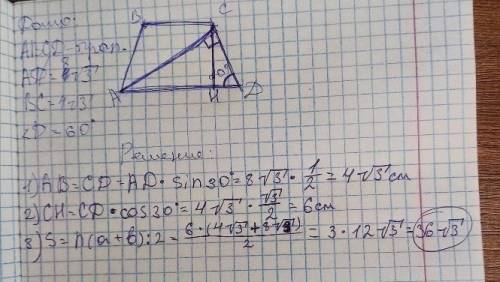 Дано:
B C
ABCD-трап.
AD=8√3
BC=4√3
60°
A H D
∠D=60°
Решение:
1) AB=CD=AD·sin30°=8√3·1/2=4√3см
2) CH=CD·cos30°=4√3·√3/2=6см
3) S=h(a+b):2=6·(4√3+8√3)/2=3·12√3=36√3